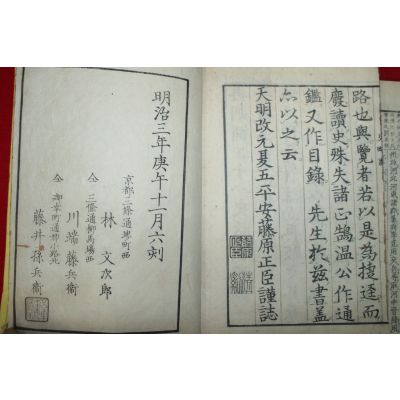 路也與覽者若以是為捷逕而
廢讀史殊失諸正鵠溫公作通
鑑又作目錄 先生於玆書蓋
亦以之云
天明改元夏五平安藤原正臣謹誌
明治三年庚午十一月六刻
京都三條通堺町西
林 文次郎
仝 三條通柳馬場西
川端藤兵衞
仝 御幸町通御池北
藤井孫兵衞